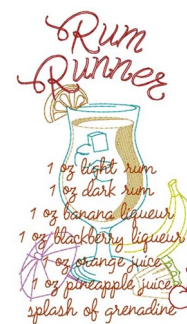 Rum
Runner
1 oz light rum
1 oz dark rum
1 oz banana liqueur
1 oz blackberry liqueur
1 oz orange juice
1 oz pineapple juice
splash of grenadine